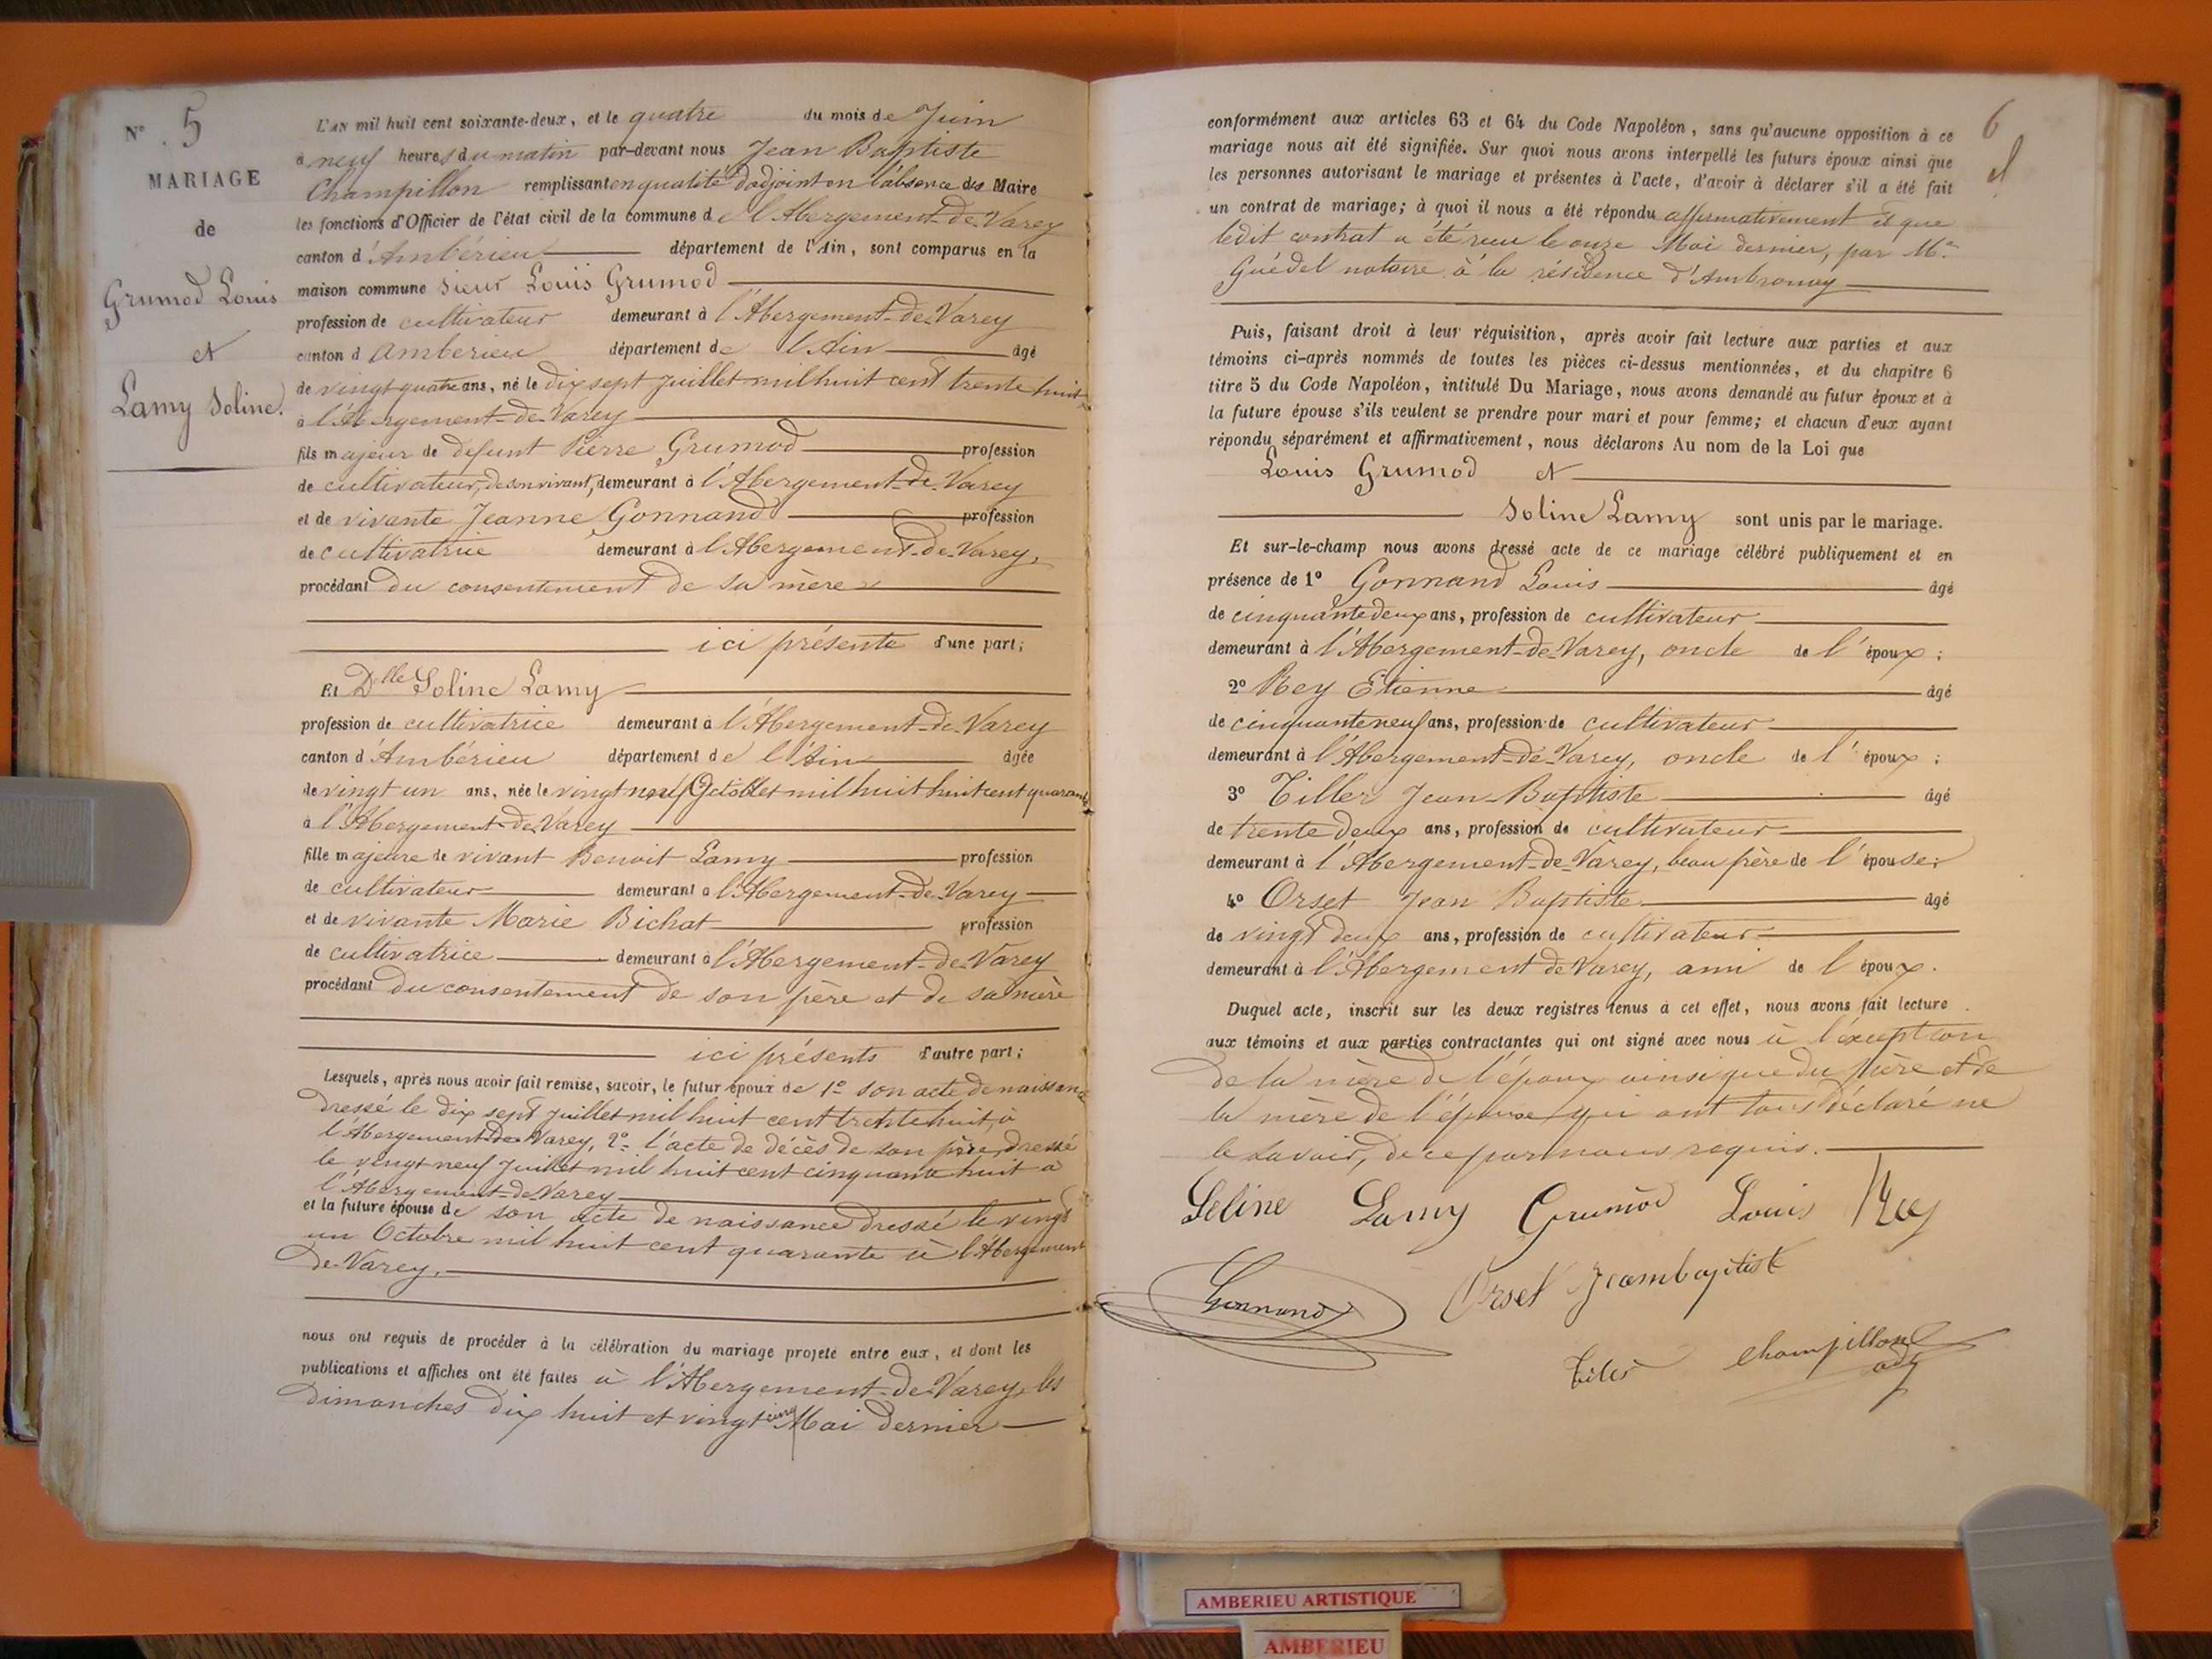 N° 5
MARIAGE
de
Grumod Louis
et
Lamy Soline.
L'AN mil huit cent soixante-deux, et le quatre du mois de Juin
à neuf heures du matin par-devant nous Jean Baptiste
Champillon remplissant en qualité d'adjoint en l'absence du Maire
les fonctions d'Officier de l'état civil de la commune de l'Abergement-de-Varey
canton d'Ambérieu département de l'Ain, sont comparus en la
maison commune sieur Louis Grumod
profession de cultivateur demeurant à l'Abergement-de-Varey
canton d'Amberieu département de l'Ain âgé
de vingt quatre ans, né le dix sept Juillet mil huit cent trente huit
à l'Abergement-de-Varey
fils majeur de défunt Pierre Grumod profession
de cultivateur, de son vivant, demeurant à l'Abergement-de-Varey
et de vivante Jeanne Gonnand profession
de cultivatrice demeurant à l'Abergement-de-Varey,
procédant du consentement de sa mère
ici présente d'une part;
Et Dlle Soline Lamy
profession de cultivatrice demeurant à l'Abergement-de-Varey
canton d'Ambérieu département de l'Ain âgée
de vingt un ans, née le vingt neuf Octobre mil huit huit cent quarante
à l'Abergement-de-Varey
fille majeure de vivant Benoit Lamy profession
de cultivateur demeurant à l'Abergement-de-Varey
et de vivante Marie Bichat profession
de cultivatrice demeurant à l'Abergement-de-Varey
procédant du consentement de son père et de sa mère
ici présents d'autre part;
Lesquels, après nous avoir fait remise, savoir, le futur époux de 1° son acte de naissance
dressé le dix sept Juillet mil huit cent trente huit, à
l'Abergement-de-Varey, 2° l'acte de décès de son père, dressé
le vingt neuf Juillet mil huit cent cinquante huit à
l'Abergement-de-Varey
et la future épouse de son acte de naissance dressé le vingt
un Octobre mil huit cent quarante à l'Abergement
de-Varey.
nous ont requis de procéder à la célébration du mariage projeté entre eux, et dont les
publications et affiches ont été faites à l'Abergement-de-Varey, les
dimanches dix huit et vingt cinq Mai dernier
6
conformément aux articles 63 et 64 du Code Napoléon, sans qu'aucune opposition à ce
mariage nous ait été signifiée. Sur quoi nous avons interpellé les futurs époux ainsi que
les personnes autorisant le mariage et présentes à l'acte, d'avoir à déclarer s'il a été fait
un contrat de mariage; à quoi il nous a été répondu affirmativement et que
ledit contrat a été reçu le onze Mai dernier, par Me
Guédel notaire à la résidence d'Ambronay
Puis, faisant droit à leur réquisition, après avoir fait lecture aux parties et aux
témoins ci-après nommés de toutes les pièces ci-dessus mentionnées, et du chapitre 6
titre 5 du Code Napoléon, intitulé Du Mariage, nous avons demandé au futur époux et à
la future épouse s'ils veulent se prendre pour mari et pour femme; et chacun d'eux ayant
répondu séparément et affirmativement, nous déclarons Au nom de la Loi que
Louis Grumod et
Soline Lamy sont unis par le mariage.
Et sur-le-champ nous avons dressé acte de ce mariage célébré publiquement et en
présence de 1° Gonnand Louis âgé
de cinquante deux ans, profession de cultivateur
demeurant à l'Abergement-de-Varey, oncle de l'époux;
2° Rey Etienne âgé
de cinquante neuf ans, profession de cultivateur
demeurant à l'Abergement-de-Varey, oncle de l'époux;
3° Tiller Jean-Baptiste âgé
de trente deux ans, profession de cultivateur
demeurant à l'Abergement-de-Varey, beau frère de l'épouse;
4° Orset Jean Baptiste âgé
de vingt deux ans, profession de cultivateur
demeurant à l'Abergement de Varey, ami de l'époux.
Duquel acte, inscrit sur les deux registres tenus à cet effet, nous avons fait lecture
aux témoins et aux parties contractantes qui ont signé avec nous à l'exception
de la mère de l'époux ainsi que du père et de
la mère de l'épouse qui ont tous déclaré ne
le savoir, de ce par nous requis.
Seline Lamy Grumod Louis Rey
Gonnand Orset Jeambaptiste
Tiler Champillon adj
AMBERIEU ARTISTIQUE
AMBERIEU